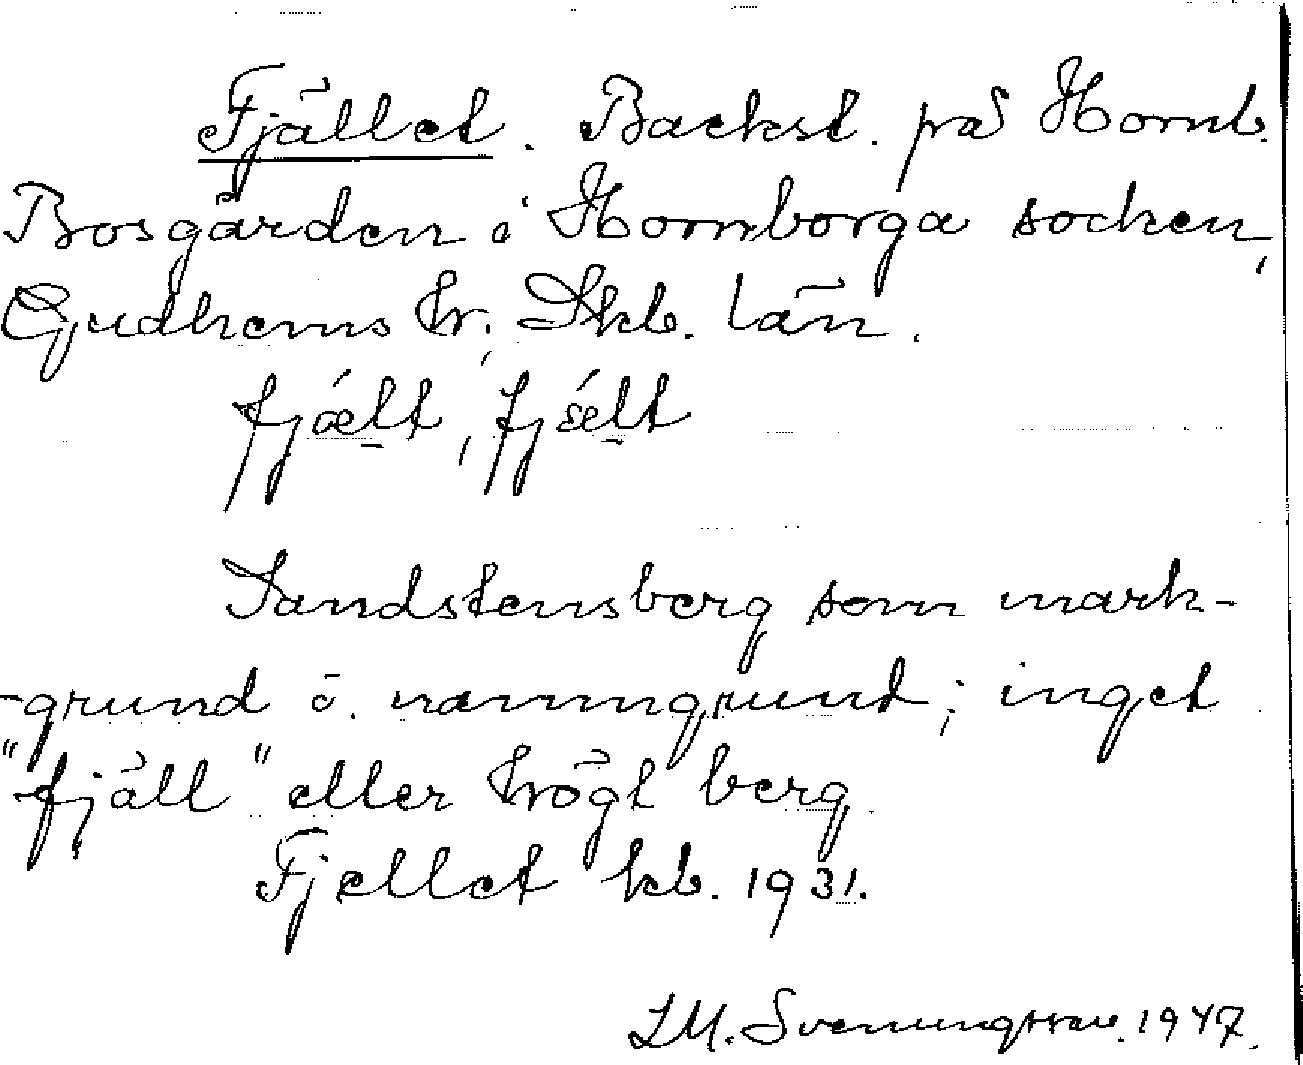 Fjället. Backst. på Hornb.
Bosgården i Hornborga socken,
Gudhems hr; Skb. län.
fjǽlt, fjǽlt
Sandstensberg som mark-
-grund o. namngrund; inget
"fjäll" eller högt berg
Fjellet kb. 1931.
LM. Svenungsson. 1947.